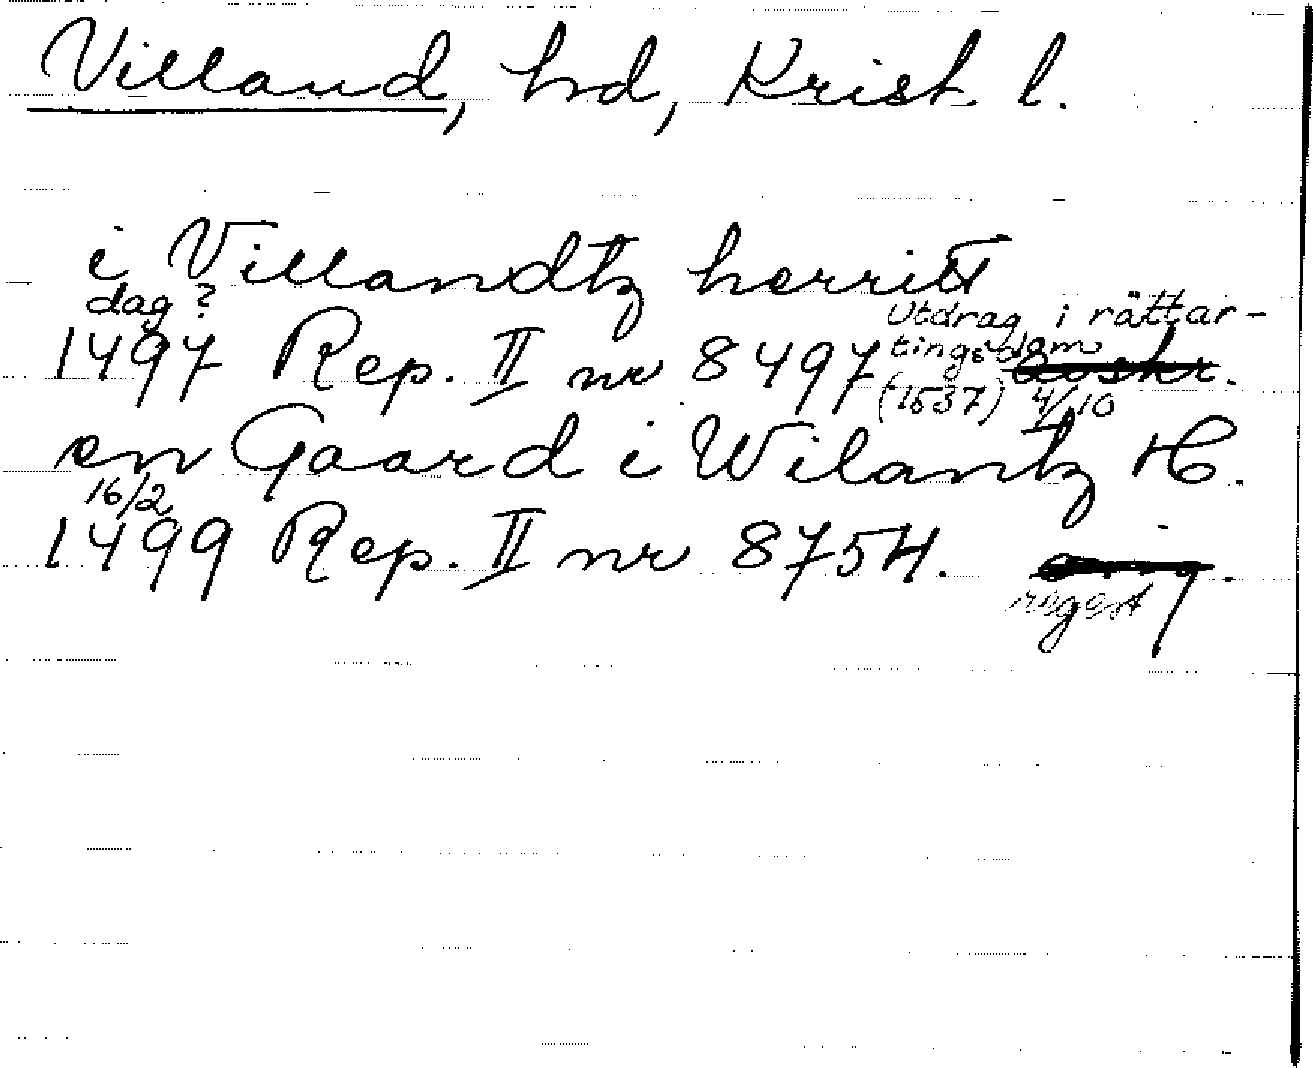 Villand, hd, Krist. l.
i Villandtz herritt
dag ?
1497 Rep. II nr 8497
Utdrag i rättar-
tingsdom
(1537) 4/10
en Gaard i Wilantz H.
16/2
1499 Rep. II nr 8754.
regest